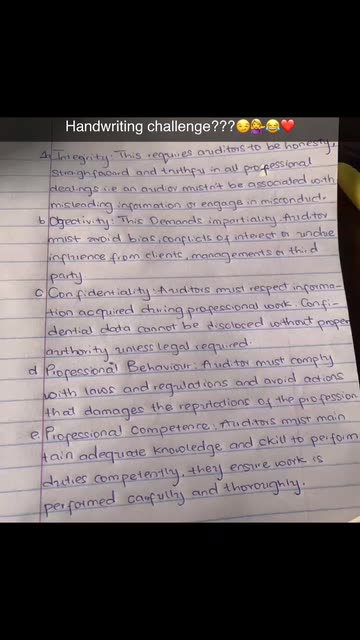 Handwriting challenge???😏💁‍♀️😂❤️
a, Integrity: This requires auditors to be honesty,
straighfoward and truthfu in all professional
dealings i.e an audior mustn't be associated with
misleading information or engage in misconduct.
b. Ogectivity: This Demands impartiality. Auditor
must avoid bias, conflicts of interest or undue
influence from clients, managements or third
party
c. Confidentiality: Auditors must respect informa-
tion acquired during professional work. Confi-
dential data cannot be disclosed without proper
authority unless legal required.
d. Professional Behaviour: Auditor must comply
with laws and regulations and avoid actions
that damages the reputations of the profession
e. Professional Competence: Auditors must main
tain adequate knowledge and skill to perform
duties competently, they ensure work is
performed carfully and thoroughly.